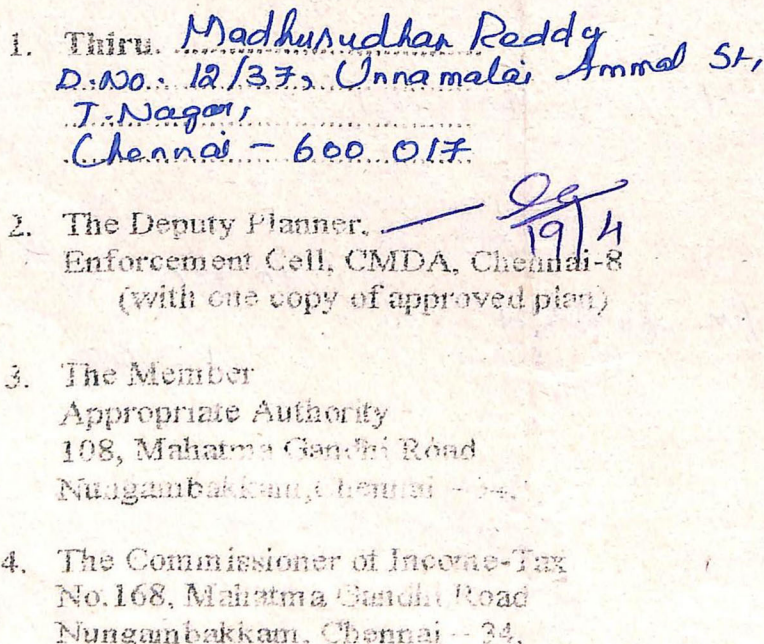 1. Thiru. Madhusudhan Reddy
D.No. 12/37, Unnamalai Ammal St,
T. Nagar,
Chennai - 600 017
2. The Deputy Planner,
19/4
Enforcement Cell, CMDA, Chennai-8
(with one copy of approved plan)
3. The Member
Appropriate Authority
108, Mahatma Gandhi Road
Nungambakkam, Chennai - 34.
4. The Commissioner of Income-Tax
No.168, Mahatma Gandhi Road
Nungambakkam, Chennai - 34.